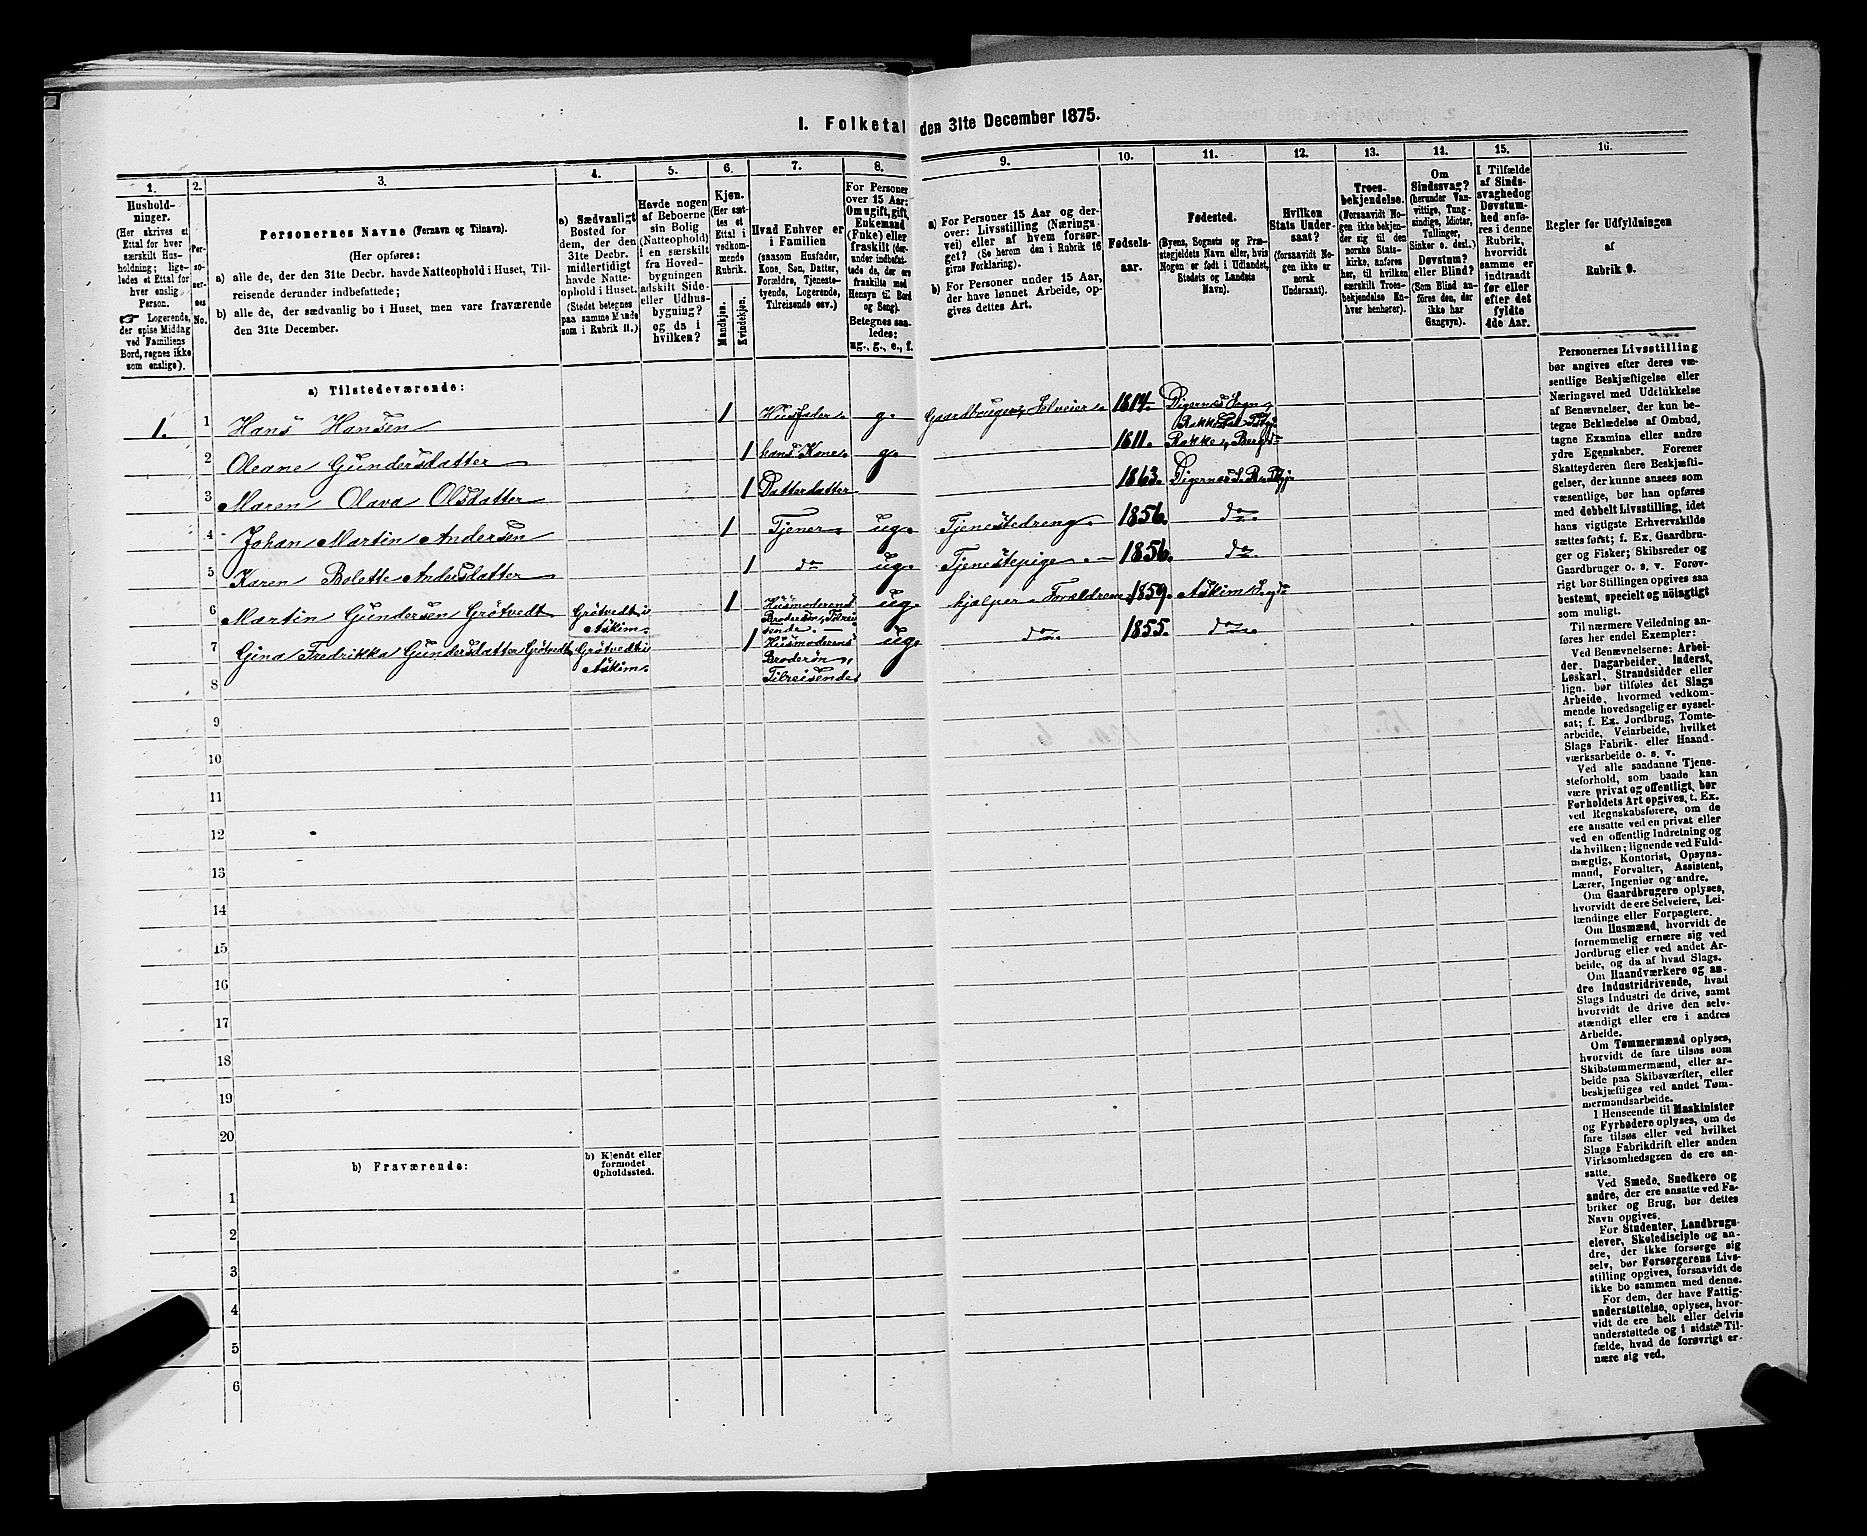 I. Folketal den 31te December 1875.
1. 2. 3. 4. 5. 6. 7. 8. 9. 10. 11. 12. 13. 14. 15. 16.
Hushold-
ninger.
(Her skrives et
Ettal for hver
særskilt Hus-
holdning; lige-
ledes et Ettal for
hver enslig
Person.
☞ Logerende,
der spise Middag
ved Familiens
Bord, regnes ikke
som enslige).
Per-
so-
ner-
nes
No.
Personernes Navne (Fornavn og Tilnavn).
(Her opføres:
a) alle de, der den 31te Decbr. havde Natteophold i Huset, Til-
reisende derunder indbefattede;
b) alle de, der sædvanlig bo i Huset, men vare fraværende
den 31te December.
a) Sædvanligt
Bosted for
dem, der den
31te Decbr.
midlertidigt
havde Natte-
ophold i Huset.
(Stedet betegnes
paa samme Maade
som i Rubrik 11.)
Havde nogen
af Beboerne
sin Bolig
(Natteophold)
i en særskilt
fra Hoved-
bygningen
adskilt Side-
eller Udhus-
bygning?
og da i
hvilken?
Kjøn.
(Her sæt-
tes et
Ettal i
vedkom-
mende
Rubrik.
Mandkjøn.
Kvindekjøn.
Hvad Enhver er
i Familien
(saasom Husfader,
Kone, Søn, Datter,
Forældre, Tjeneste-
tyende, Logerende,
Tilreisende osv.)
For Personer
over 15 Aar:
Om ugift, gift,
Enkemand
(Enke) eller
fraskilt (der-
under indbefat-
tede de, der ere
fraskilte med
Hensyn til Bord
og Seng).
Betegnes saa-
ledes:
ug., g., e., f.
a) For Personer 15 Aar og der-
over: Livsstilling (Nærings-
vei) eller af hvem forsør-
get? (Se herom den i Rubrik 16
givne Forklaring).
b) For Personer under 15 Aar,
der have lønnet Arbeide, op-
gives dettes Art.
Fødsels-
aar.
Fødested.
(Byens, Sognets og Præ-
stegjeldets Navn eller, hvis
Nogen er født i Udlandet,
Stedets og Landets
Navn).
Hvilken
Stats Under-
saat?
(forsaavidt No-
gen ikke er
norsk
Undersaat).
Troes-
bekjendelse.
(Forsaavidt No-
gen ikke bekjen-
der sig til den
norske Stats-
kirke, anføres
her, til hvilken
særskilt Troes-
bekjendelse En-
hver henhører).
Om
Sindssvag?
(herunder Van-
vittige, Tung-
sindige, Idioter,
Tullinger,
Sinker o. desl.)
Døvstum?
eller Blind?
(Som Blind an-
føres den, der
ikke har
Gangsyn).
I Tilfælde
af Sinds-
svaghed og
Døvstum-
hed anfø-
res i denne
Rubrik,
hvorvidt
samme er
indtraadt
før eller
efter det
fyldte
4de Aar.
Regler for Udfyldningen
af
Rubrik 9.
a) Tilstedeværende:
1. 1 Hans Hansen 1 Husfader g. Gaardbruger, Selveier. 1814. Digernes Sogn
2 Oleane Gundersdatter 1 hans Kone g. 1811. Rakke, Berg
3 Maren Olava Olsdatter 1 Datterdatter 1863. Digernes
4 Johan Martin Andersen 1 Tjener ug. Tjenestedreng 1856. do
5 Karen Bolette Andersdatter 1 do ug. Tjenestepige 1856. do
6 Martin Gundersen Grötvedt Grötvedt i Askim 1 Husmoderens Brodersön, Tilreisende ug. hjælper Forældrene 1859. Askim
7 Gina Fredrikka Gundersdatter Grötvedt Grötvedt i Askim 1 Husmoderens Brodersön, Tilreisende ug. do 1855. do
8
9
10
11
12
13
14
15
16
17
18
19
20
b) Fraværende:
b) Kjendt eller
formodet
Opholdssted.
1
2
3
4
5
6
Personernes Livsstilling
bør angives efter deres væ-
sentlige Beskjæftigelse eller
Næringsvei med Udelukkelse
af Benævnelser, der kun be-
tegne Beklædelse af Ombud,
tagne Examina eller andre
ydre Egenskaber. Forener
Skatteyderen flere Beskjæfti-
gelser, der kunne ansees som
væsentlige, bør han opføres
med dobbelt Livsstilling, idet
hans vigtigste Erhvervskilde
sættes først; f. Ex. Gaardbru-
ger og Fisker; Skibsreder og
Gaardbruger o. s. v. Forøv-
rigt bør Stillingen opgives saa
bestemt, specielt og nøiagtigt
som muligt.
Til nærmere Veiledning an-
føres her endel Exempler:
Ved Benævnelserne: Arbei-
der, Dagarbeider, Inderst,
Løskarl, Strandsidder eller
lign. bør tilføies det Slags
Arbeide, hvormed vedkom-
mende hovedsagelig er syssel-
sat; f. Ex. Jordbrug, Tomte-
arbeide, Veiarbeide, hvilket
Slags Fabrik- eller Haand-
værksarbeide o. s. v.
Ved alle saadanne Tjene-
steforhold, som baade kan
være privat og offentligt, bør
Forholdets Art opgives, t. Ex.
ved Regnskabsførere, om de
ere ansatte ved en privat eller
ved en offentlig Indretning og
da hvilken; lignende ved Fuld-
mægtig, Kontorist, Opsyns-
mand, Forvalter, Assistent,
Lærer, Ingeniør og andre.
Om Gaardbrugere oplyses,
hvorvidt de ere Selveiere, Lei-
lændinge eller Forpagtere.
Om Husmænd, hvorvidt de
fornemmelig ernære sig ved
Jordbrug eller ved andet Ar-
beide, og da af hvad Slags.
Om Haandværkere og an-
dre Industridrivende, hvad
Slags Industri de drive, samt
hvorvidt de drive den selv-
stændigt eller ere i andres
Arbeide.
Om Tømmermænd oplyses,
hvorvidt de fare tilsøs som
Skibstømmermænd, eller ar-
beide paa Skibsværfter, eller
beskjæftiges ved andet Tøm-
mermandsarbeide.
I Henseende til Maskinister
og Fyrbødere oplyses, om de
fare tilsøs eller ved hvilket
Slags Fabrikdrift eller anden
Virksomhedsgren de ere an-
satte.
Ved Smede, Snedkere og
andre, der ere ansatte ved Fa-
briker og Brug, bør dettes
Navn opgives.
For Studenter, Landbrugs-
elever, Skoledisciple og an-
dre, der ikke forsørge sig
selv, bør Forsørgerens Livs-
stilling opgives, forsaavidt de
ikke bo sammen med denne.
For dem, der have Fattig-
understøttelse, oplyses, hvor-
vidt de ere helt eller delvis
understøttede og i sidste Til-
fælde, hvad de forøvrigt er-
nære sig ved.